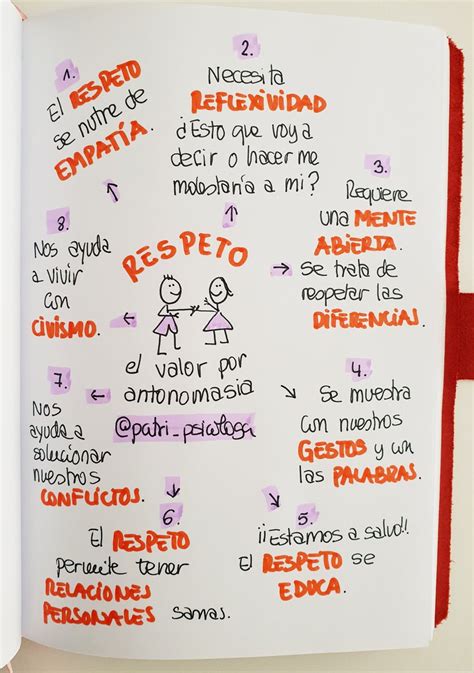 RESPETO
el valor por
antonomasia
@patri_psicologa
1.
El RESPETO
se nutre de
EMPATÍA.
2.
Necesita
REFLEXIVIDAD
¿Esto que voy a
decir o hacer me
molestaría a mi?
3.
Requiere
una MENTE
ABIERTA.
Se trata de
respetar las
DIFERENCIAS.
4.
Se muestra
con nuestros
GESTOS y con
las PALABRAS.
5.
¡¡Estamos a salvo!!
El RESPETO se
EDUCA.
6.
El RESPETO
permite tener
RELACIONES
PERSONALES sanas.
7.
Nos
ayuda a
solucionar
nuestros
CONFLICTOS.
8.
Nos ayuda
a vivir
con
CIVISMO.